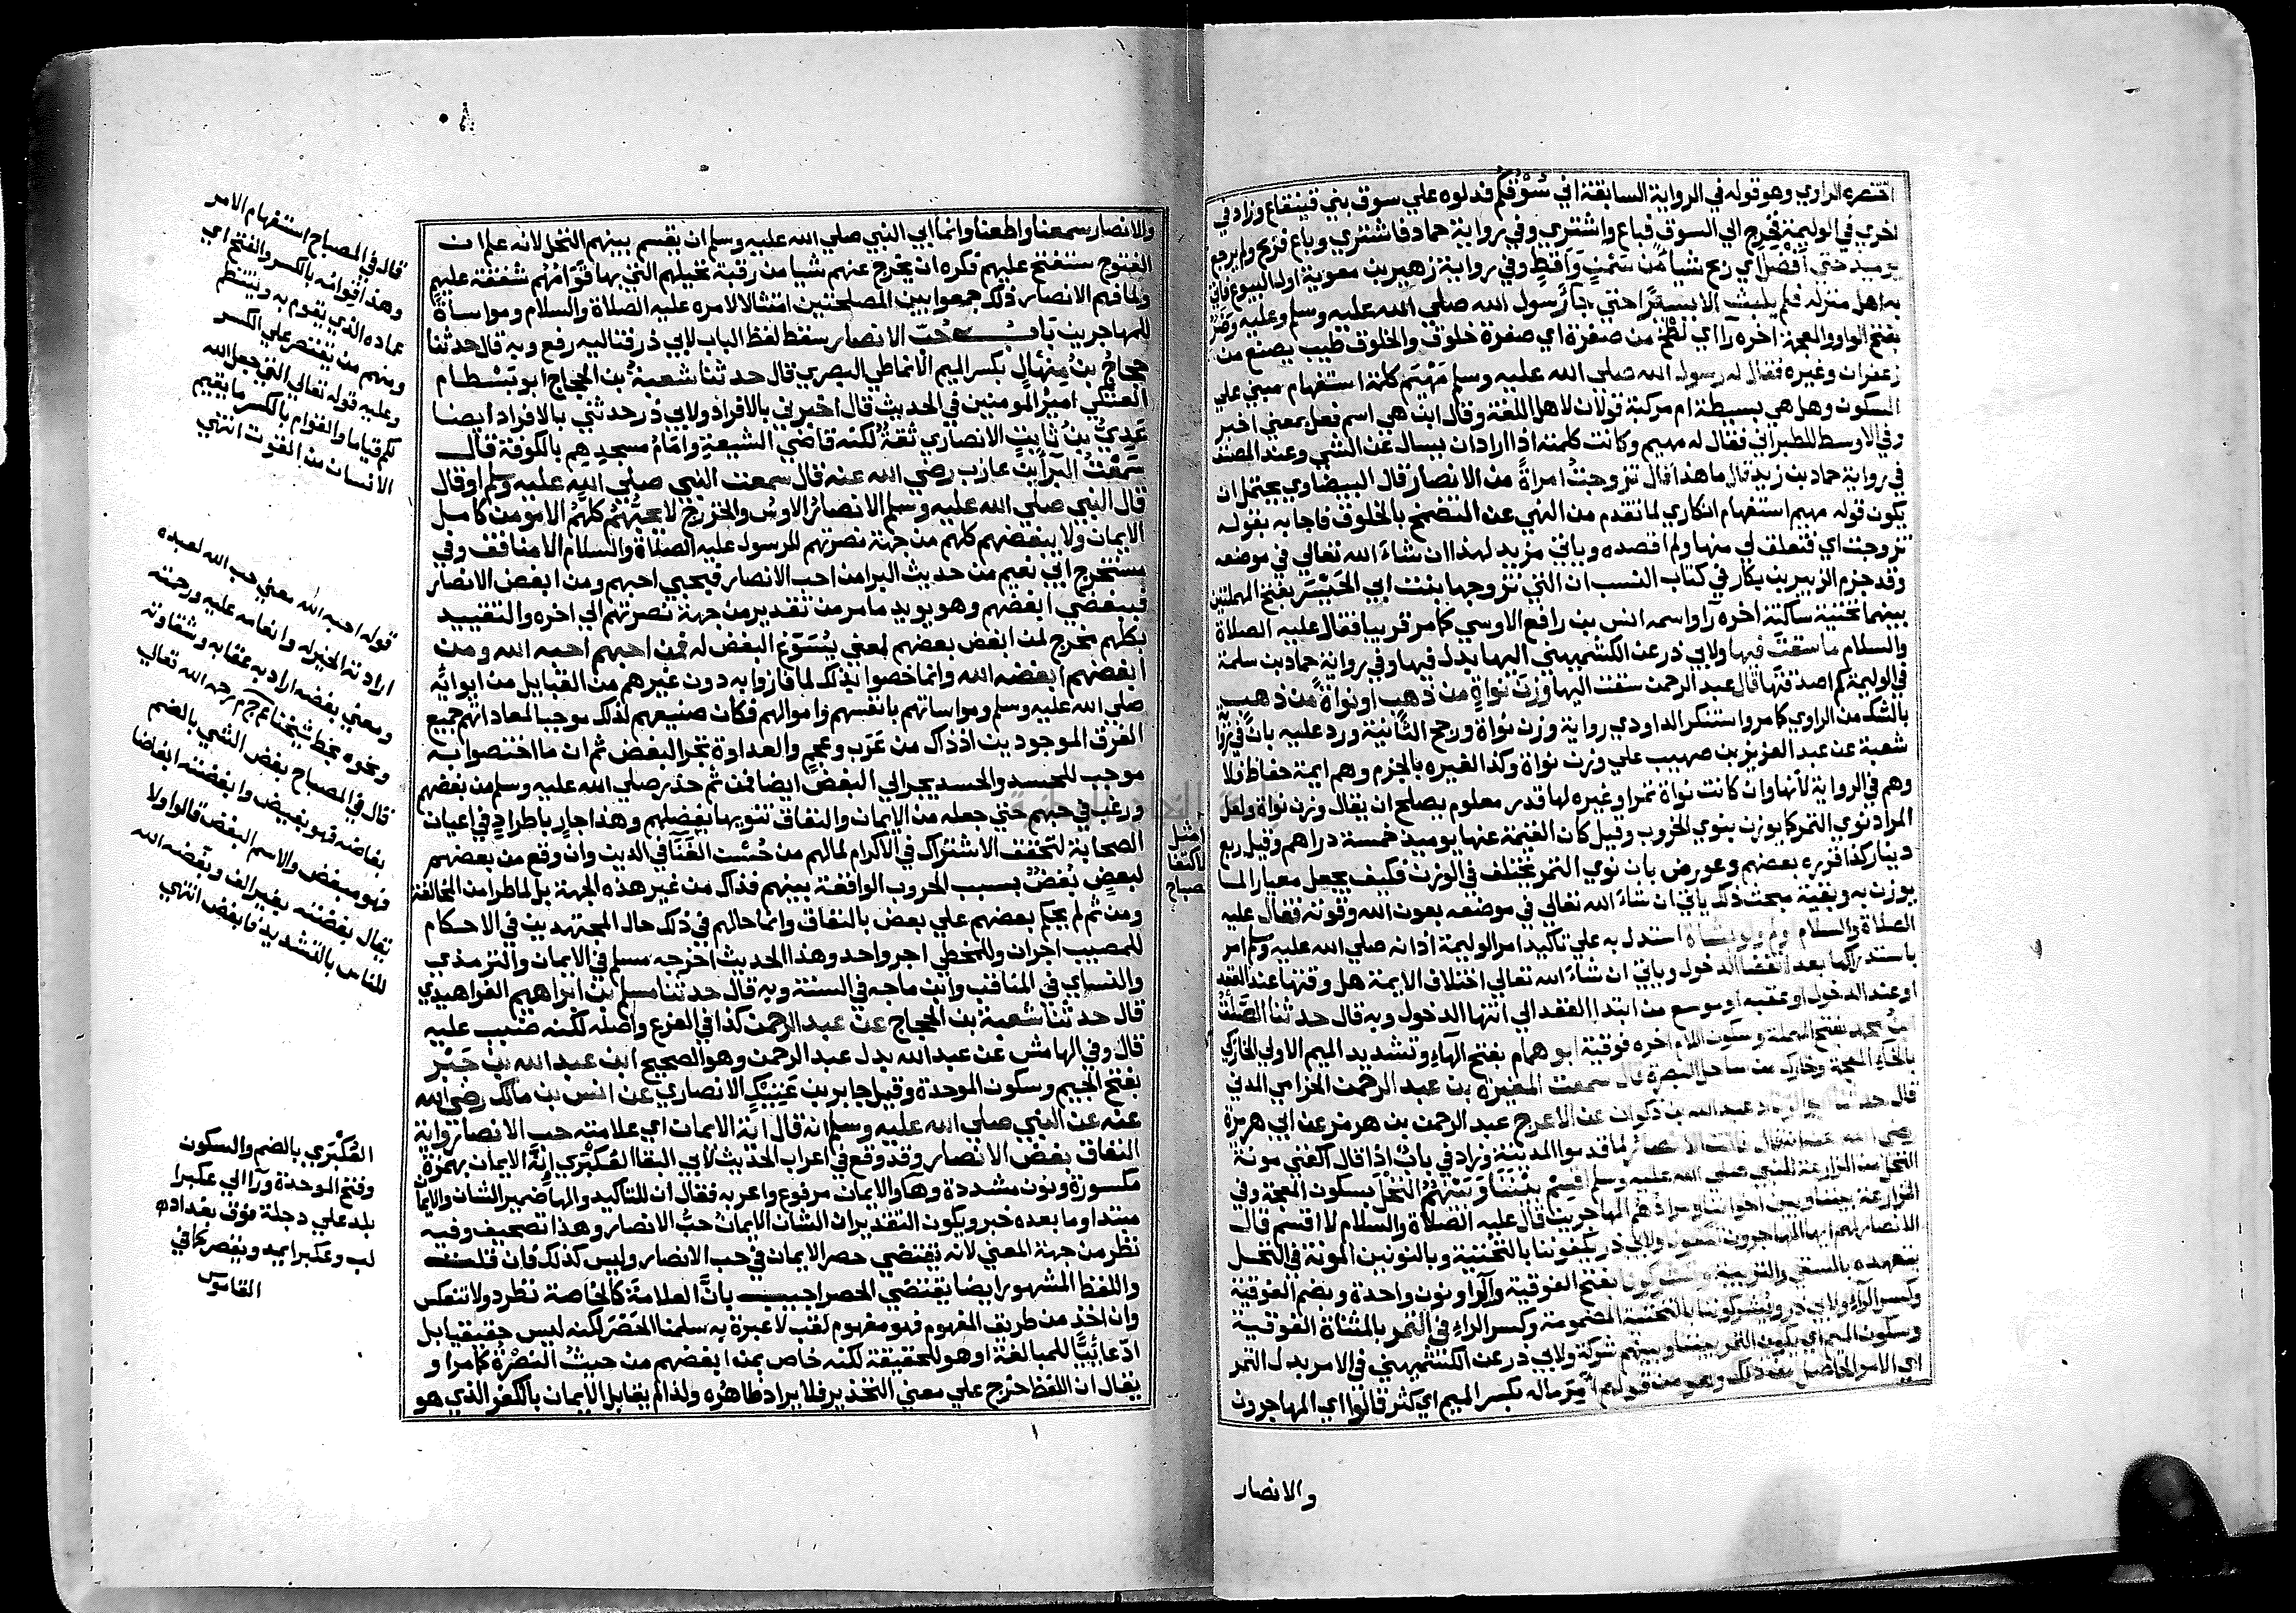 اقتصره الراوي وهو قوله في الرواية السابقة اني سوقكم فدلوه علي سوق بني قينقاع وزاد في
اخري في الوليمة فخرج الي السوق فباع واشتري وفي رواية حماد فاشتري وباع فربح ولم يرجع
يوميذ حتي افضل اي ربح شيا من سمن واقط وفي رواية زهير بن معوية اول البيوع فاتي
به اهل منزله فلم يلبث الا يسيرا حتي جا رسول الله صلي الله عليه وسلم وعليه وضر
بفتح الواو والمعجمة اخره را اي لطخ من صفرة اي صفرة خلوق والخلوق طيب يصنع من
زعفران وغيره فقال له رسول الله صلي الله عليه وسلم مهيم كلمة استفهام مبني علي
السكون وهل هي بسيطة ام مركبة قولان لاهل اللغة وقال ابن هي اسم فعل بمعني اخبر
وفي الاوسط للطبراني فقال له مهيم وكانت كلمته اذا اراد ان يسال عن الشي وعند المصنف
في رواية حماد بن زيد قال ما هذا قال تزوجت امراة من الانصار قال البيضاوي يحتمل ان
يكون قوله مهيم استفهام انكاري لما تقدم من النهي عن التضمخ بالخلوق فاجابه بقوله
تزوجت اي فتعلق لي منها ولم اقصده وياتي مزيد لهذا ان شاء الله تعالي في موضعه
وقد جزم الزبير بن بكار في كتاب النسب ان التي تزوجها بنت ابي الحيسر بفتح المهملتين
بينهما تحتية ساكنة اخره را واسمه انس بن رافع الاوسي كما مر قريبا فقال عليه الصلاة
والسلام ما سقت فيها ولابي ذر عن الكشميهني اليها بدل فيها وفي رواية حماد بن سلمة
في الوليمة كم اصدقتها قال عبد الرحمن سقت اليها وزن نواة من ذهب او نواة من ذهب
بالشك من الراوي كما مر واستنكر الداودي رواية وزن نواة ورجح الثانية ورد عليه بان في رواية
شعبة عن عبد العزيز بن صهيب علي وزن نواة وكذا لغيره بالجزم وهم ايمة حفاظ فلا
وهم في الرواية لانها وان كانت نواة تمر او غيره لها قدر معلوم يصلح ان يقال وزن نواة ولعل
المراد نوي التمر كما يوزن بنوي الخروب وقيل كان القيمة عنها يوميذ خمسة دراهم وقيل ربع
دينار كذا قرره بعضهم وعورض بان نوي التمر يختلف في الوزن فكيف يجعل معيارا لما
يوزن به وبقية مبحث ذلك ياتي ان شاء الله تعالي في موضعه بعون الله وقوته فقال عليه
الصلاة والسلام اولم ولو بشاة استدل به علي تاكيد امر الوليمة اذ انه صلي الله عليه وسلم امر
باستدراكها بعد انقضا الدخول وياتي ان شاء الله تعالي اختلاف الايمة هل وقتها عند العقد
او عند الدخول او عقبه او موسع من ابتدا العقد الي انتها الدخول وبه قال حدثنا الصلت
بن محمد بفتح المهملة وسكون اللام اخره فوقية ابو همام بفتح الهاء وتشديد الميم الاولي الخاركي
بالخاء المعجمة وخارك من ساحل البصرة قال سمعت المغيرة بن عبد الرحمن الحزامي المدني
قال حدثنا ابو الزناد عبد الله بن ذكوان عن الاعرج عبد الرحمن بن هرمز عن ابي هريرة
رضي الله عنه انه قال قالت الانصار لما قدموا المدينة وزاد في باب اذا قال اكفني مونة
النخل من المزارعة للنبي صلي الله عليه وسلم اقسم بيننا وبينهم النخل بسكون المعجمة وفي
المزارعة بيننا وبين اخواننا ومرادهم المهاجرين قال عليه الصلاة والسلام لا اقسم قال
الانصار لهم ايها المهاجرون تكفونا ولابي ذر يكفوننا بالتحتية وبالنونين المونة في النخل
بتعهده بالسقي والتربية وتشركونا بفتح الفوقية والراء ونون واحدة وبضم الفوقية
وكسر الراء ولابي ذر ويشركوننا بالتحتية المضمومة وكسر الراء في التمر بالمثناة الفوقية
وسكون الميم اي يكون التمر بيننا وبينهم شركة ولابي ذر عن الكشميهني في الامر بدل التمر
اي الامر الحاصل من ذلك وهو من قولهم امر ماله بكسر الميم اي كثر قالوا اي المهاجرون
والانصار
والانصار سمعنا واطعنا وانما ابي النبي صلي الله عليه وسلم ان يقسم بينهم النخل لانه علم ان
الفتوح ستفتح عليهم فكره ان يخرج عنهم شيا من رقبة نخيلهم التي بها قوامهم شفقة عليهم
ولما فهم الانصار ذلك جمعوا بين المصلحتين امتثالا لامره عليه الصلاة والسلام ومواساة
للمهاجرين باب حب الانصار سقط لفظ الباب لابي ذر فتاليه رفع وبه قال حدثنا
حجاج بن منهال بكسر الميم الانماطي البصري قال حدثنا شعبة بن الحجاج ابو بسطام
العتكي امير المومنين في الحديث قال اخبرني بالافراد ولابي ذر حدثني بالافراد ايضا
عدي بن ثابت الانصاري ثقة لكنه قاضي الشيعة وامام مسجدهم بالكوفة قال
سمعت البراء بن عازب رضي الله عنه قال سمعت النبي صلي الله عليه وسلم او قال
قال النبي صلي الله عليه وسلم الانصار الاوس والخزرج لا يحبهم كلهم الا مومن كامل
الايمان ولا يبغضهم كلهم من جهة نصرتهم للرسول عليه الصلاة والسلام الا منافق وفي
مستخرج ابي نعيم من حديث البرا من احب الانصار فبحبي احبهم ومن ابغض الانصار
فببغضي ابغضهم وهو يويد ما مر من تقدير من جهة نصرتهم الي اخره والتقييد
بكلهم مخرج لمن ابغض بعضهم لمعني يسوغ البغض له فمن احبهم احبه الله ومن
ابغضهم ابغضه الله وانما خصوا بذلك لما فازوا به دون غيرهم من القبايل من ايوائه
صلي الله عليه وسلم ومواساتهم بانفسهم واموالهم فكان صنيعهم لذلك موجبا لمعاداتهم جميع
الفرق الموجودين اذ ذاك من عرب وعجم والعداوة تجر البغض ثم ان ما اختصوا به
موجب للحسد والحسد يجر الي البغض ايضا فمن ثم حذر صلي الله عليه وسلم من بغضهم
ورغب في حبهم حتي جعله من الايمان والنفاق تنويها بفضلهم وهذا جار باطراد في اعيان
الصحابة لتحقق الاشتراك في الاكرام لما لهم من حسن الغناء في الدين وان وقع من بعضهم
لبعض بغض بسبب الحروب الواقعة بينهم فذاك من غير هذه الجهة بل لما طرا من المخالفة
ومن ثم لم يحكم بعضهم علي بعض بالنفاق وانما حالهم في ذلك حال المجتهدين في الاحكام
للمصيب اجران وللمخطي اجر واحد وهذا الحديث اخرجه مسلم في الايمان والترمذي
والنساي في المناقب وابن ماجه في السنة وبه قال حدثنا مسلم بن ابراهيم الفراهيدي
قال حدثنا شعبة بن الحجاج عن عبد الرحمن كذا في الفرع واصله لكنه ضبب عليه
قال وفي الهامش عن عبد الله بدل عبد الرحمن وهو الصحيح ابن عبد الله بن جبر
بفتح الجيم وسكون الموحدة وقيل جابر بن عتيك الانصاري عن انس بن مالك رضي الله
عنه عن النبي صلي الله عليه وسلم انه قال اية الايمان اي علامته حب الانصار واية
النفاق بغض الانصار وقد وقع في اعراب الحديث لابي البقا العكبري انه الايمان بهمزة
مكسورة ونون مشددة وها والايمان مرفوع واعربه فقال ان للتاكيد والها ضمير الشان والايمان
مبتدا وما بعده خبر ويكون التقدير ان الشان الايمان حب الانصار وهذا تصحيف وفيه
نظر من جهة المعني لانه يقتضي حصر الايمان في حب الانصار وليس كذلك فان قلت
واللفظ المشهور ايضا يقتضي الحصر اجيب بان العلامة كالخاصة تطرد ولا تنعكس
وان اخذ من طريق المفهوم فهو مفهوم لقب لا عبرة به سلمنا الحصر لكنه ليس حقيقيا بل
ادعائيا للمبالغة او هو للحقيقة لكنه خاص بمن ابغضهم من حيث النصرة كما مر او
يقال ان اللفظ خرج علي معني التحذير فلا يراد ظاهره ولذا لم يقابل الايمان بالكفر الذي هو
قال في المصباح استفهام الامر
وهذا قوامه بالكسر والفتح اي
عماده الذي يقوم به وينتظم
ومنهم من يقتصر علي الكسر
وعليه قوله تعالي التي جعل الله
لكم قياما والقوام بالكسر ما يقيم
الانسان من القوت انتهي
قوله احبه الله معني حب الله لعبده
ارادته الخير له وانعامه عليه ورحمته
ومعني بغضه ارادته عقابه وشقاوته
ونحوه بخط شيخنا ع ج م رحمه الله تعالي
قال في المصباح بغض الشي بالضم
بغاضة فهو بغيض وابغضته ابغاضا
فهو مبغض والاسم البغض قالوا ولا
يقال بغضته بغير الف وبغضه الله
للناس بالتشديد فابغض انتهي
العكبري بالضم والسكون
وفتح الموحدة ورا الي عكبرا
بلد علي دجلة فوق بغداد اه
لب وعكبرا يمد ويقصر كما في
القاموس